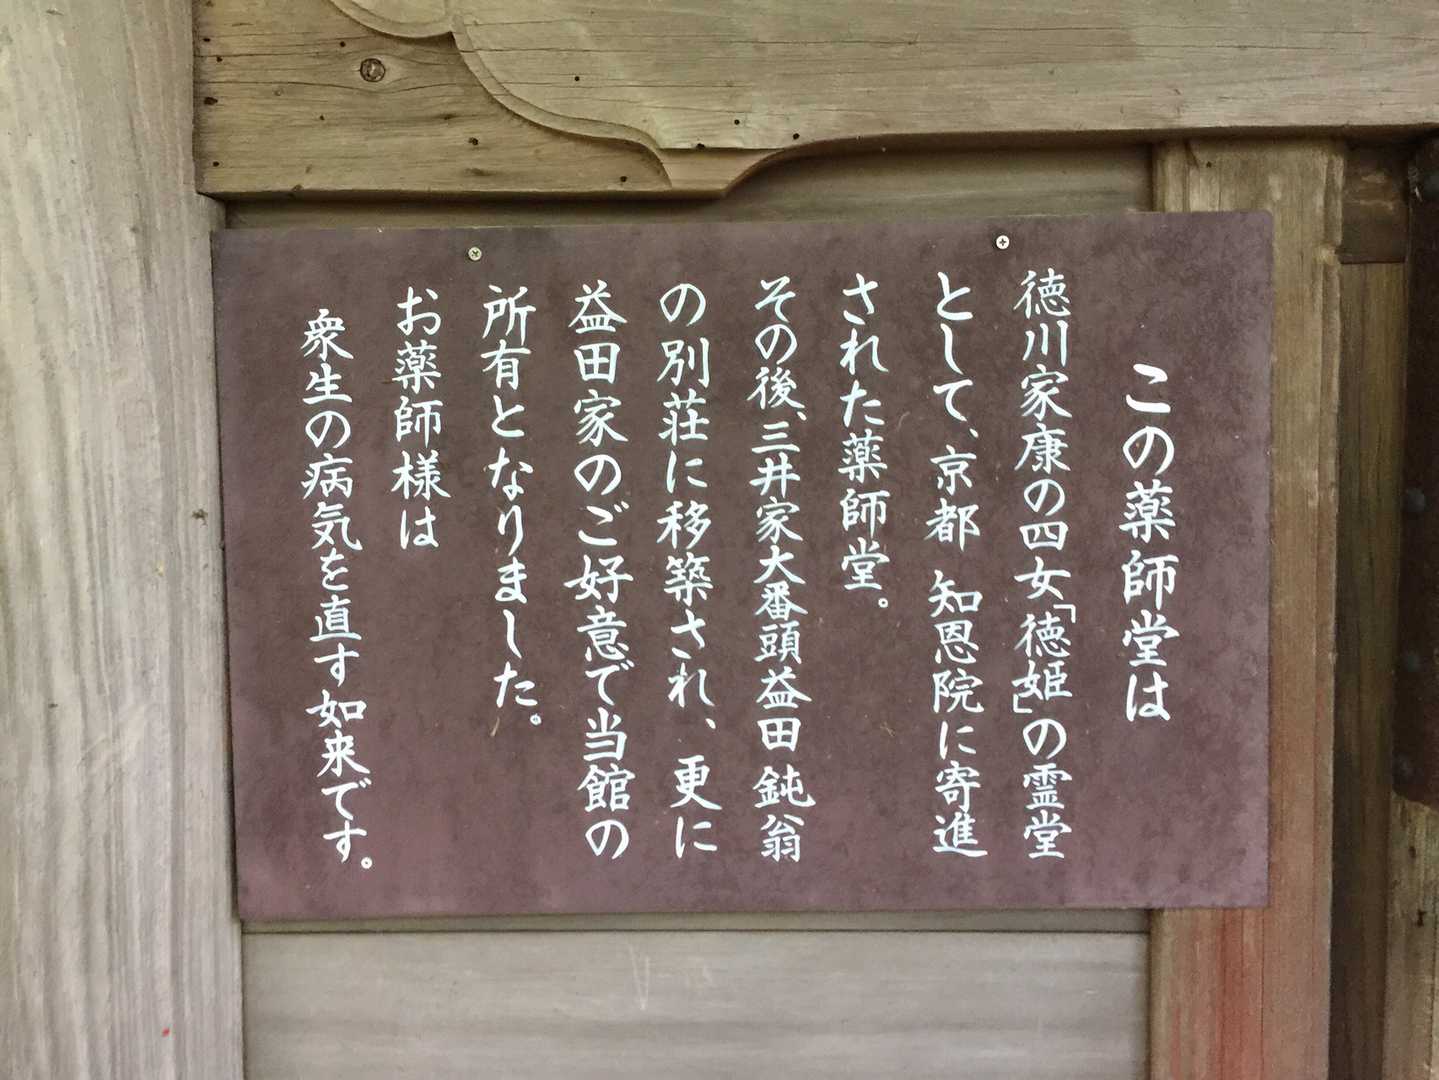 この薬師堂は
徳川家康の四女「徳姫」の霊堂
として、京都 知恩院に寄進
された薬師堂。
その後、三井家大番頭益田鈍翁
の別荘に移築され、更に
益田家のご好意で当館の
所有となりました。
お薬師様は
衆生の病気を直す如来です。